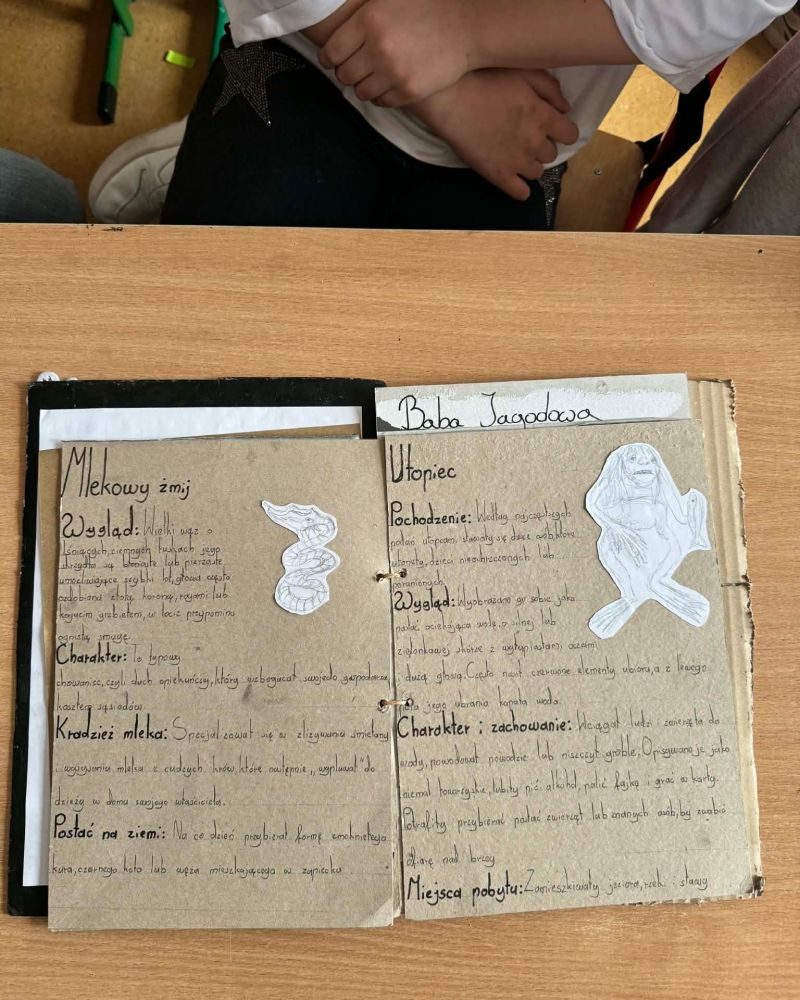 Mlekowy żmij
Wygląd: Wielki wąż o
lśniących, ciemnych łuskach jego
skrzydła są błoniaste lub pierzaste
umożliwiające szybki lot, głowa często
ozdobiona złotą koroną, rogami lub
kogucim grzebieniem, w locie przypomina
ognistą smugę.
Charakter: To typowy
chowaniec, czyli duch opiekuńczy, który wzbogacał swojego gospodarza
kosztem sąsiadów.
Kradzież mleka: Specjalizował się w zlizywaniu śmietany
i wysysaniu mleka z cudzych krów, które następnie „wypluwał" do
dzieży w domu swojego właściciela.
Postać na ziemi: Na co dzień przybierał formę zmokniętego
kura, czarnego kota lub węża mieszkającego w zapiecku
Baba Jagodowa
Utopiec
Pochodzenie: Według najczęstszych
podań utopcami stawały się dusze osób, które
utonęły, dzieci nieochrzczonych lub
poronionych.
Wygląd: Wyobrażano go sobie jako
postać ociekającą wodą, o silnej lub
zielonkawej skórze z wyłupiastami oczami
i dużą głową. Często nosił czerwone elementy ubioru, a z lewego
poła jego ubrania kapała woda.
Charakter i zachowanie: Wciągał ludzi i zwierzęta do
wody, powodował powodzie lub niszczył groble. Opisywano je jako
niemal towarzyskie, lubiły pić alkohol, palić fajkę i grać w karty.
Potrafiły przybierać postać zwierząt lub znanych osób, by zwabić
ofiarę nad brzeg
Miejsca pobytu: Zamieszkiwały jeziora, rzeki i stawy